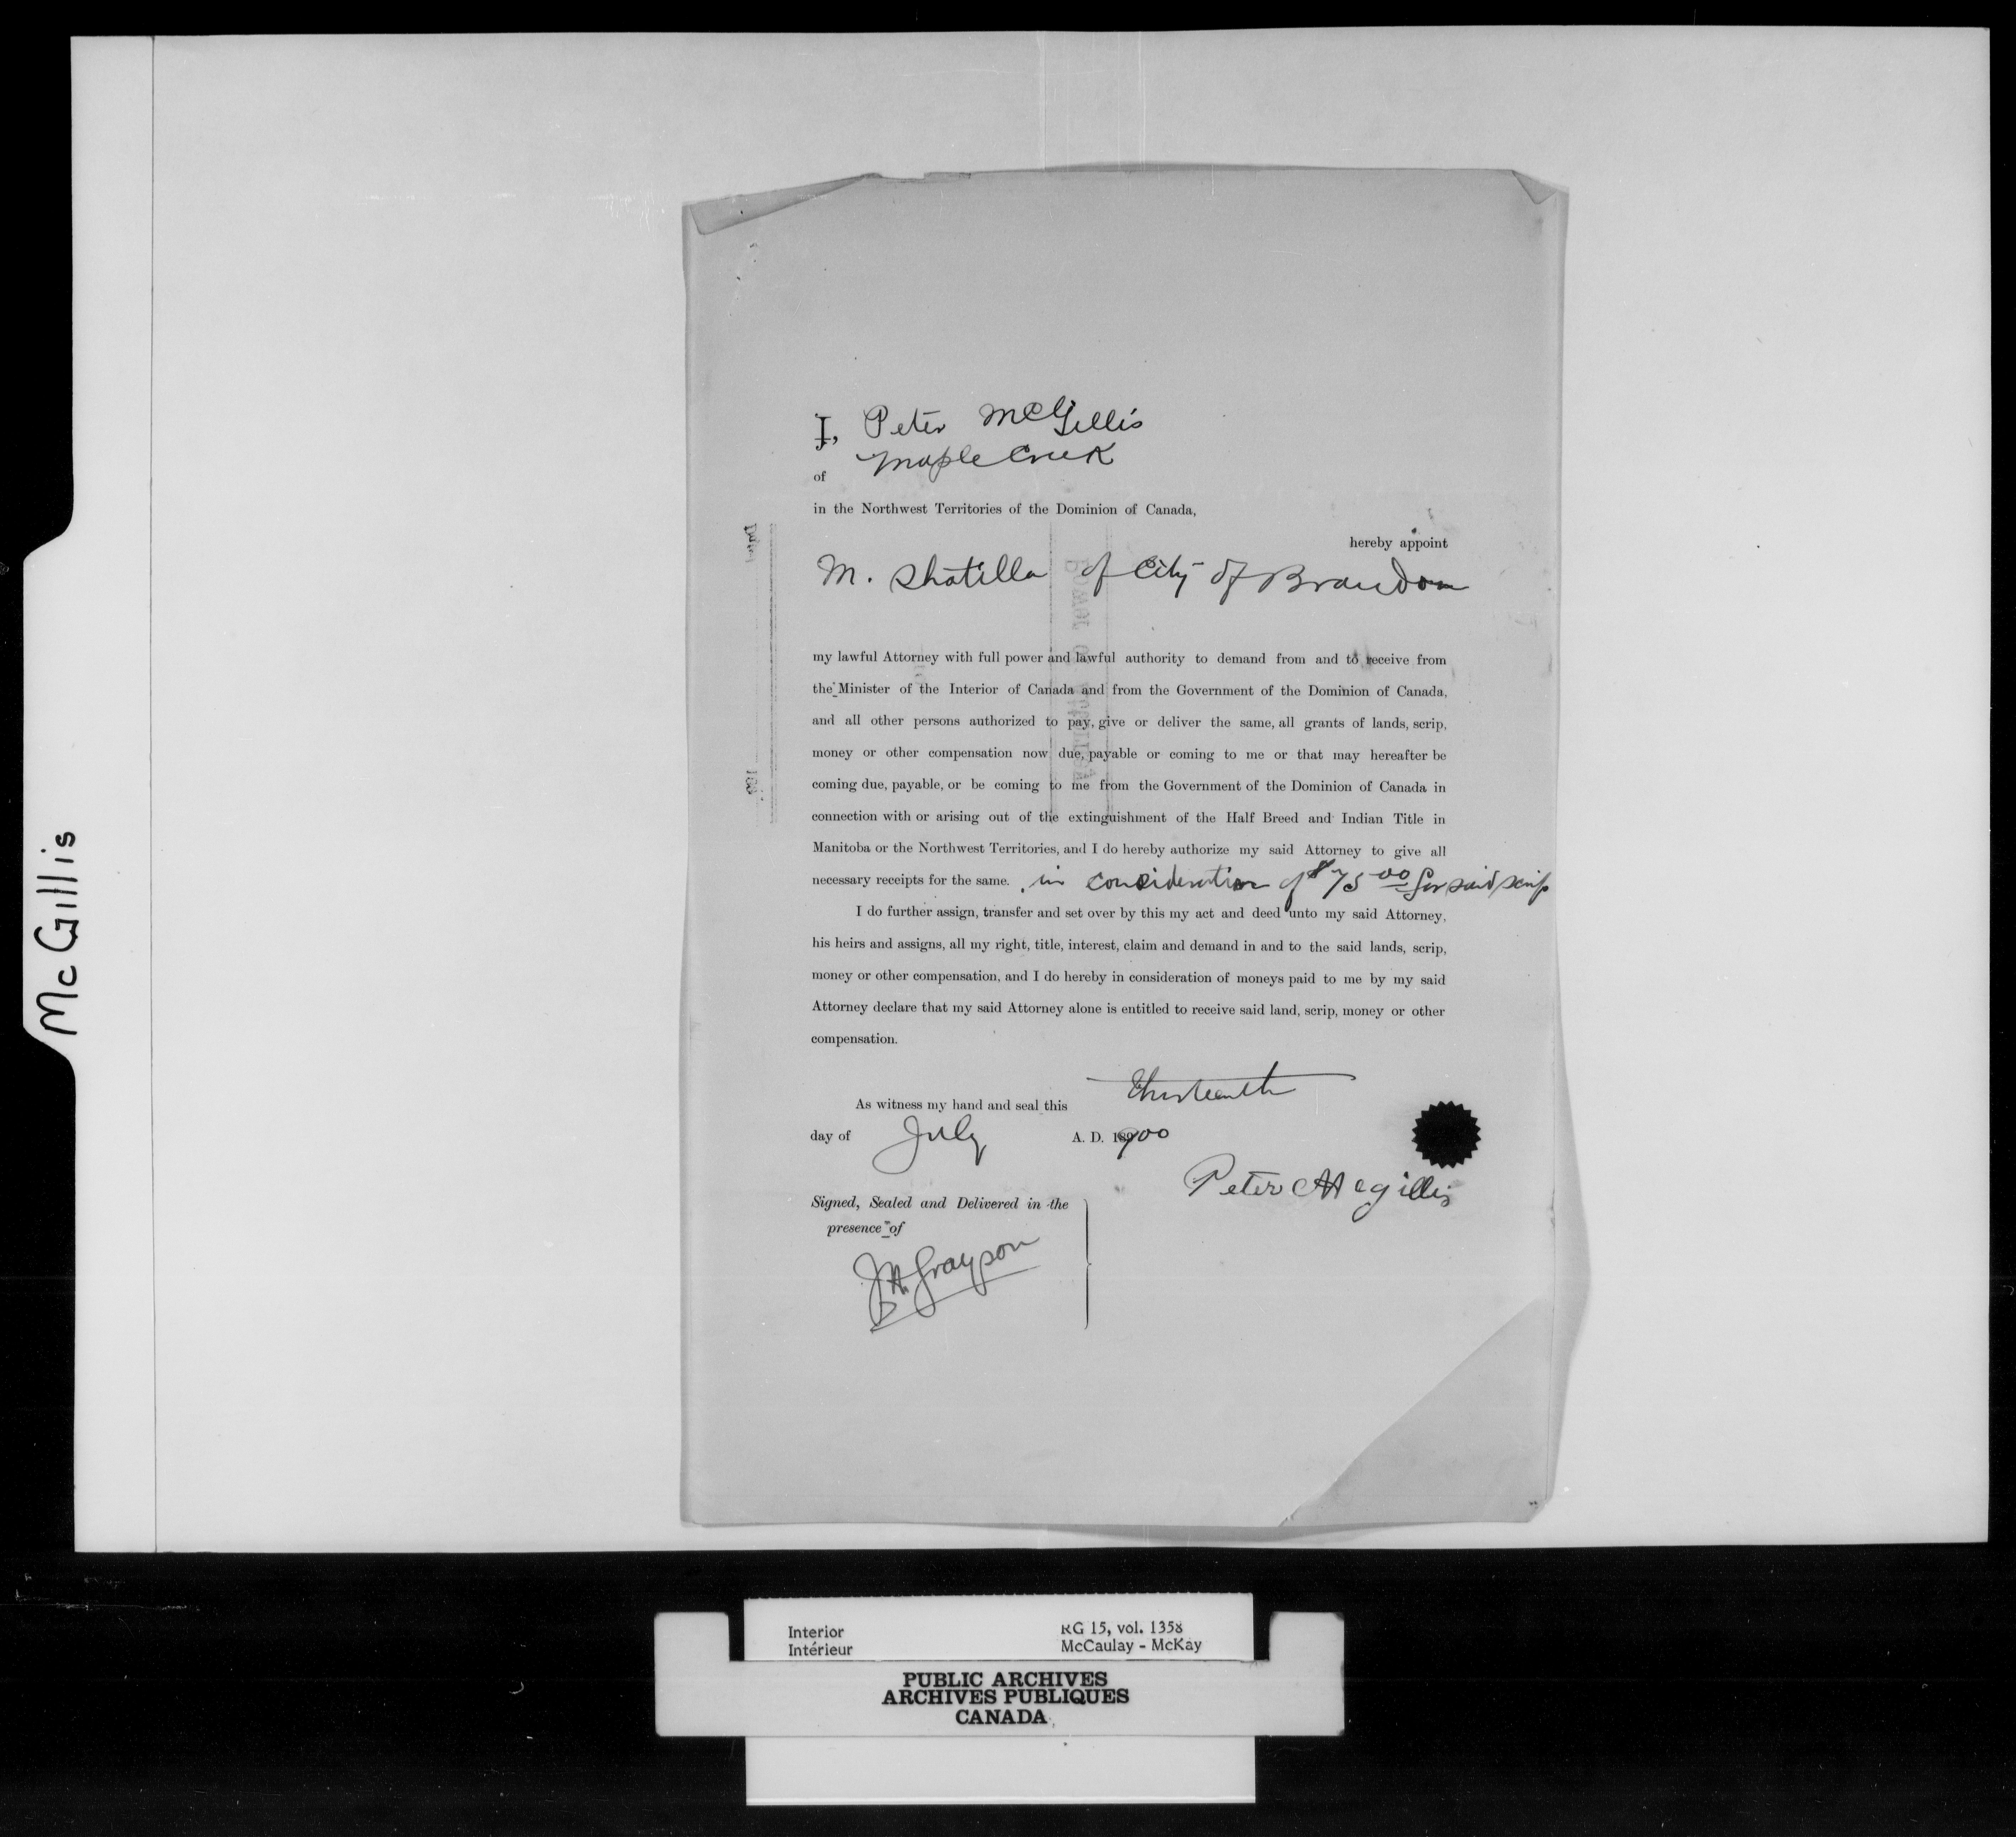 McGillis
I, Peter McGillis
of Maple Creek
in the Northwest Territories of the Dominion of Canada,
hereby appoint
M. Shatilla of City of Brandon
my lawful Attorney with full power and lawful authority to demand from and to receive from
the Minister of the Interior of Canada and from the Government of the Dominion of Canada,
and all other persons authorized to pay, give or deliver the same, all grants of lands, scrip,
money or other compensation now due, payable or coming to me or that may hereafter be
coming due, payable, or be coming to me from the Government of the Dominion of Canada in
connection with or arising out of the extinguishment of the Half Breed and Indian Title in
Manitoba or the Northwest Territories, and I do hereby authorize my said Attorney to give all
necessary receipts for the same. in consideration of $75 00 for said scrip
I do further assign, transfer and set over by this my act and deed unto my said Attorney,
his heirs and assigns, all my right, title, interest, claim and demand in and to the said lands, scrip,
money or other compensation, and I do hereby in consideration of moneys paid to me by my said
Attorney declare that my said Attorney alone is entitled to receive said land, scrip, money or other
compensation.
As witness my hand and seal this Thirteenth
day of July A. D. 1900
Peter Mcgillis
Signed, Sealed and Delivered in the
presence of
J.A. Grayson
Interior RG 15, vol. 1358
Intérieur McCaulay - McKay
PUBLIC ARCHIVES
ARCHIVES PUBLIQUES
CANADA